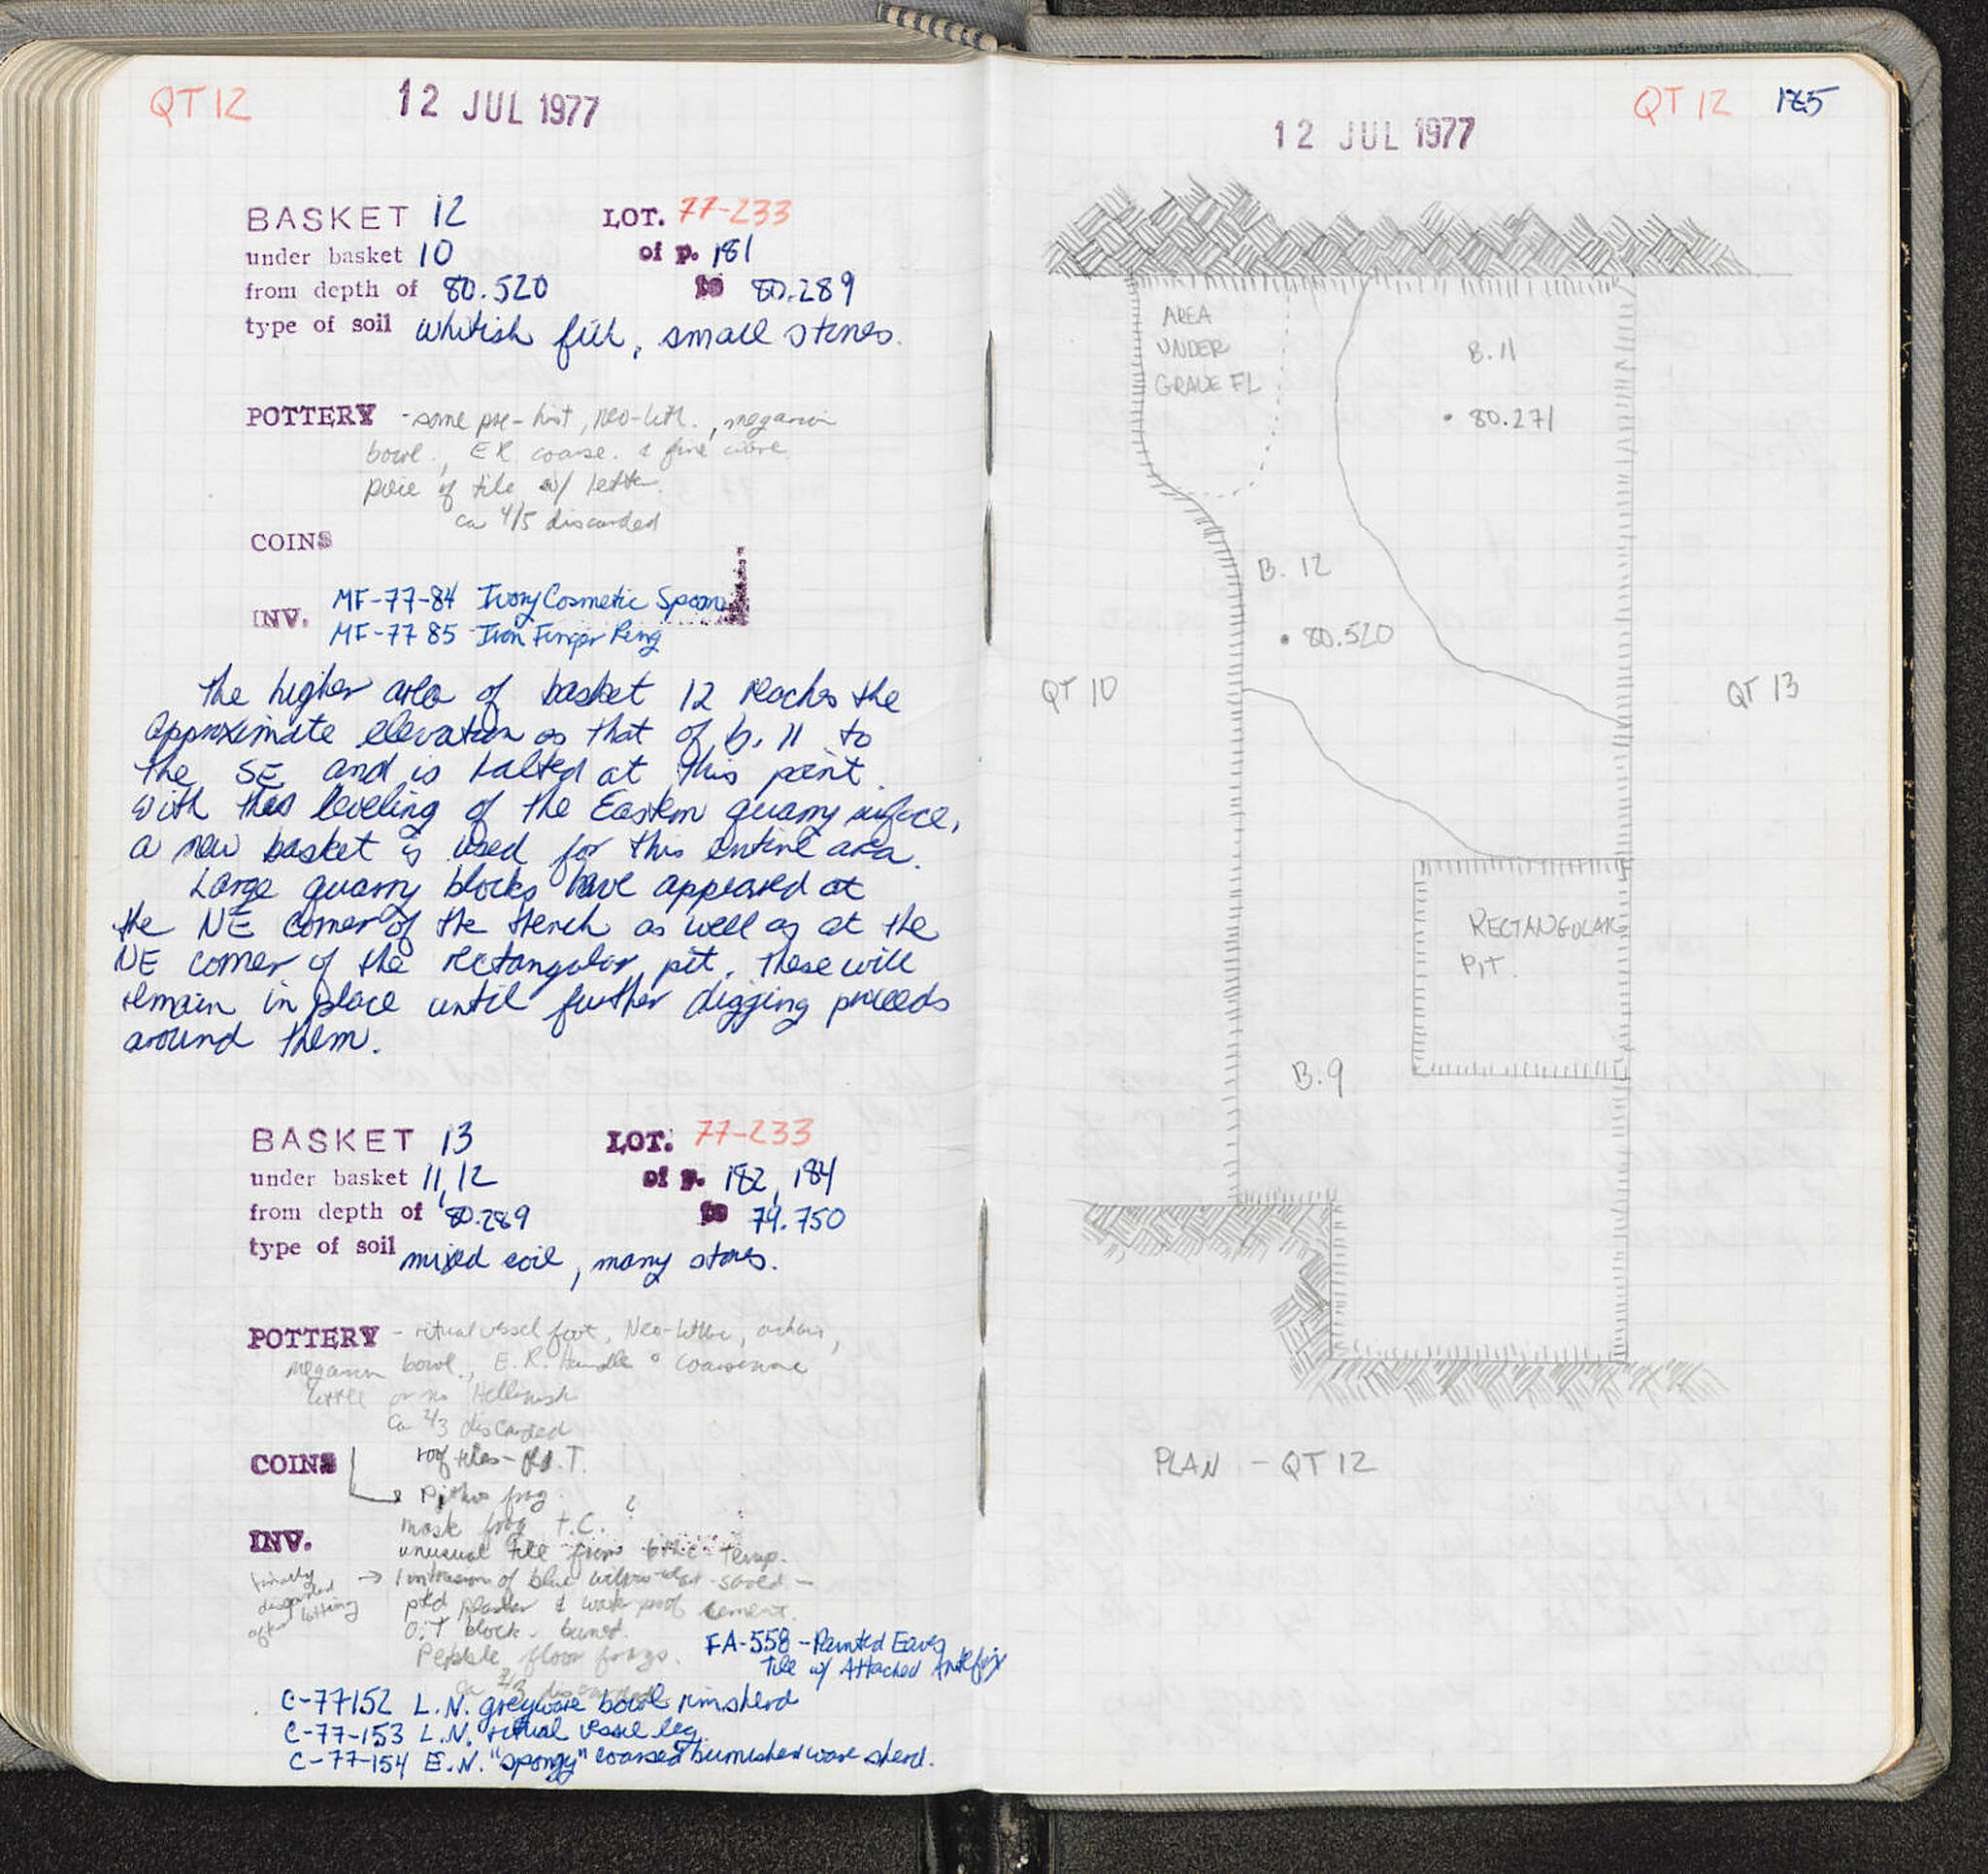 QT 12
12 JUL 1977
BASKET 12 LOT. 77-233
under basket 10 of p. 181
from depth of 80.520 to 80.289
type of soil whitish fill, small stones.
POTTERY - some pre-hist, neo-lith., megarian
bowl., ER coarse. & fine ware
piece of tile w/ letter.
ca 4/5 discarded
COINS
INV. MF-77-84 Ivory Cosmetic Spoon
MF-77 85 Iron Finger Ring
The higher area of basket 12 reaches the
approximate elevation as that of b. 11 to
the SE and is halted at this point
with this leveling of the Eastern quarry surface,
a new basket is used for this entire area.
Large quarry blocks have appeared at
the NE corner of the trench as well as at the
NE corner of the rectangular pit. These will
remain in place until further digging proceeds
around them.
BASKET 13 LOT. 77-233
under basket 11, 12 of p. 182, 184
from depth of 80.289 to 79.750
type of soil mixed soil, many stones.
POTTERY - ritual vessel foot, Neo-lithic,
megarian bowl., E.R. Handle & coarseware
little or no Hellenistic
ca 2/3 discarded
COINS roof tiles -
Pithos frag.
mask frag T.C. ?
INV. unusual tile from
finally discarded after lotting → of blue saved -
ptd plaster & water proof cement.
block - burned.
Pebble floor frags.
ca 2/3 discarded
FA-558 - Painted Eaves
Tile w/ Attached Antefix
C-77152 L.N. greyware bowl rimsherd
C-77-153 L.N. ritual vessel leg
C-77-154 E.N. "spongy" coarsed burnished ware sherd.
QT 12
12 JUL 1977
AREA
UNDER
GRAVE FL
B. 11
80.271
B. 12
80.520
QT 10
QT 13
RECTANGULAR
PIT.
B. 9
PLAN - QT 12